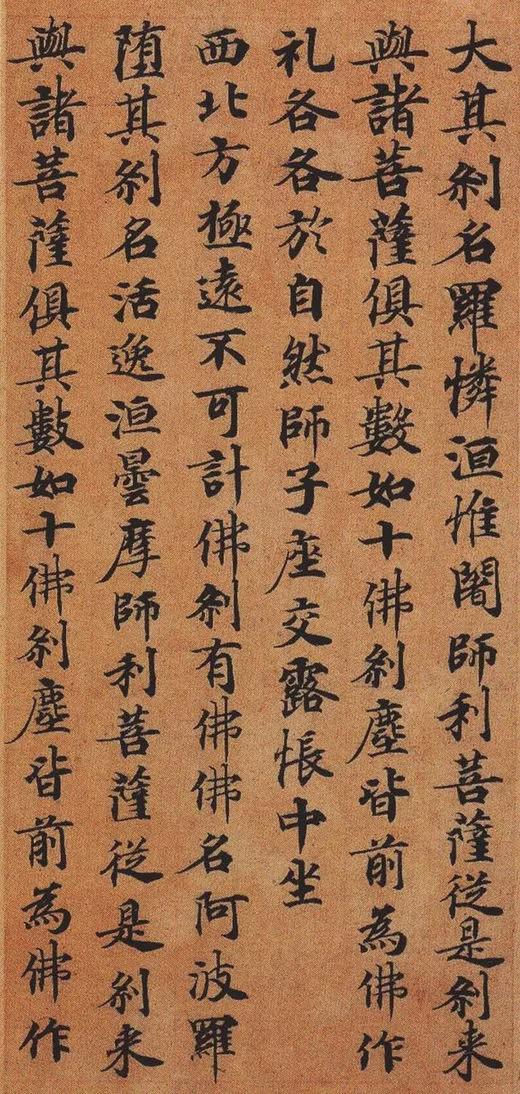 大其刹名羅憐洹惟闍師利菩薩從是刹来
與諸菩薩俱其數如十佛刹塵皆前為佛作
礼各各於自然師子座交露帳中坐
西北方極遠不可計佛刹有佛佛名阿波羅
墮其刹名活逸洹曇摩師利菩薩從是刹来
與諸菩薩俱其數如十佛刹塵皆前為佛作